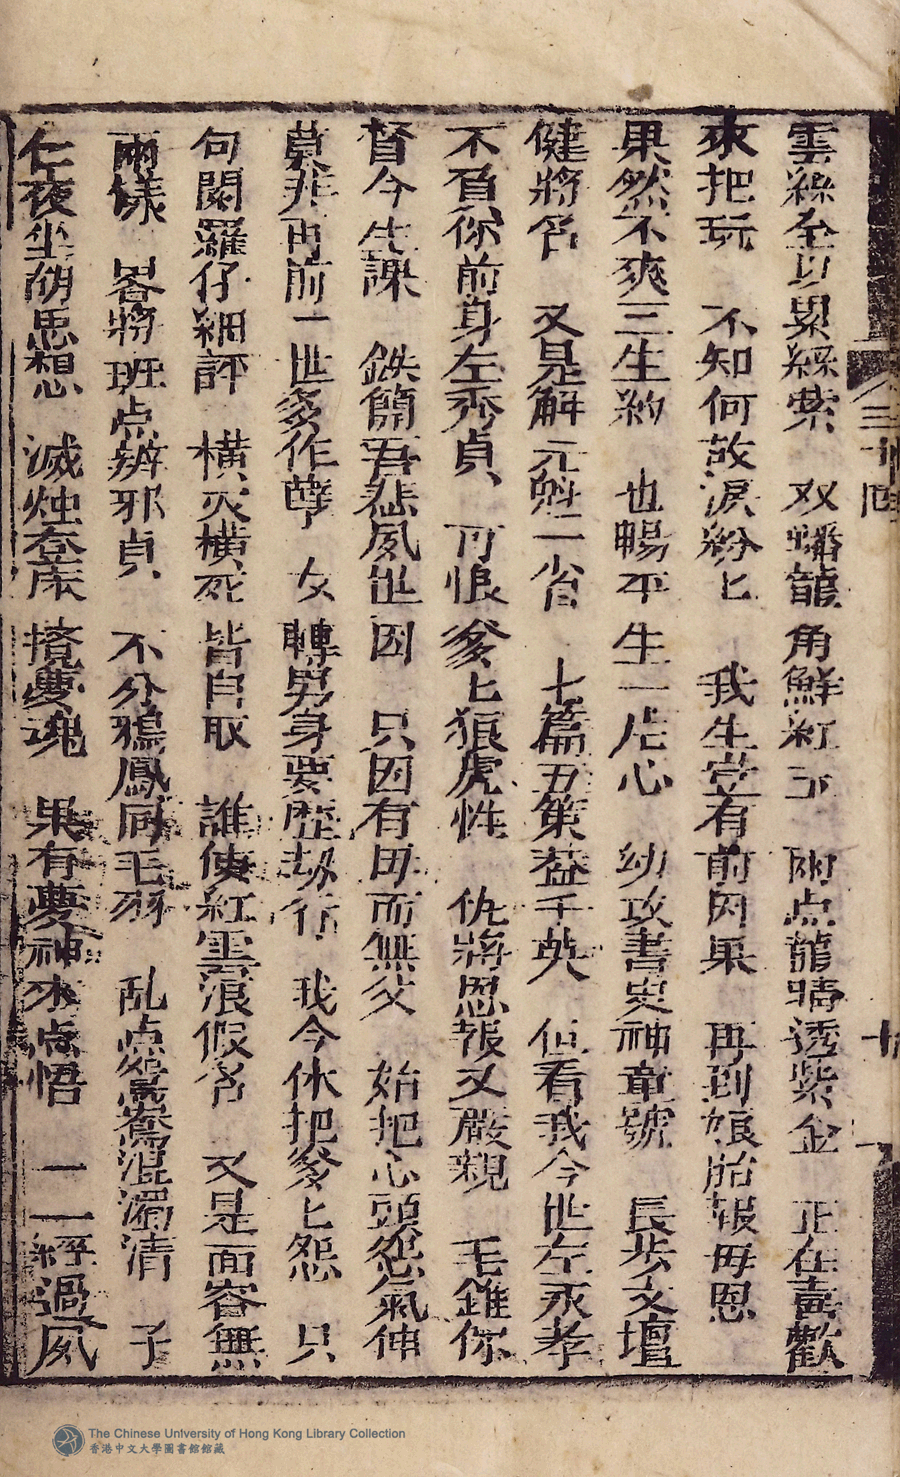 雲綵全以累綵縈　双蟠龍角鮮紅玉　兩点龍睛透紫金　正在喜歡
來把玩　不知何故淚紛匕　我生豈有前因果　再到娘胎報毋恩
果然不爽三生約　也暢平生一片心　幼攻書史神童號　長步文壇
健將名　又是解元魁二省　七篇五策蓋千英　但看我今世左永孝
不負你前身左秀貞　可恨爹匕狼虎性　仇將恩報又嚴親　毛錐你
督今生課　鉄簡吾愁夙世因　只因有毋而無父　始把心頭怨氣伸
莫非再前一世多作孽　女轉男身要歷劫行　我今休把爹匕怨　只
句閻羅仔細評　橫灾橫死皆自取　誰使紅雲浪假名　又是面容無
兩樣　畧將班点辨邪貞　不分鴉鳳同毛羽　乱点鴛鴦混濁清　子
仁夜坐胡思想　滅烛登床攬夢魂　果有夢神來点悟　一一經過夙
三十
十一
The Chinese University of Hong Kong Library Collection
香港中文大學圖書館館藏